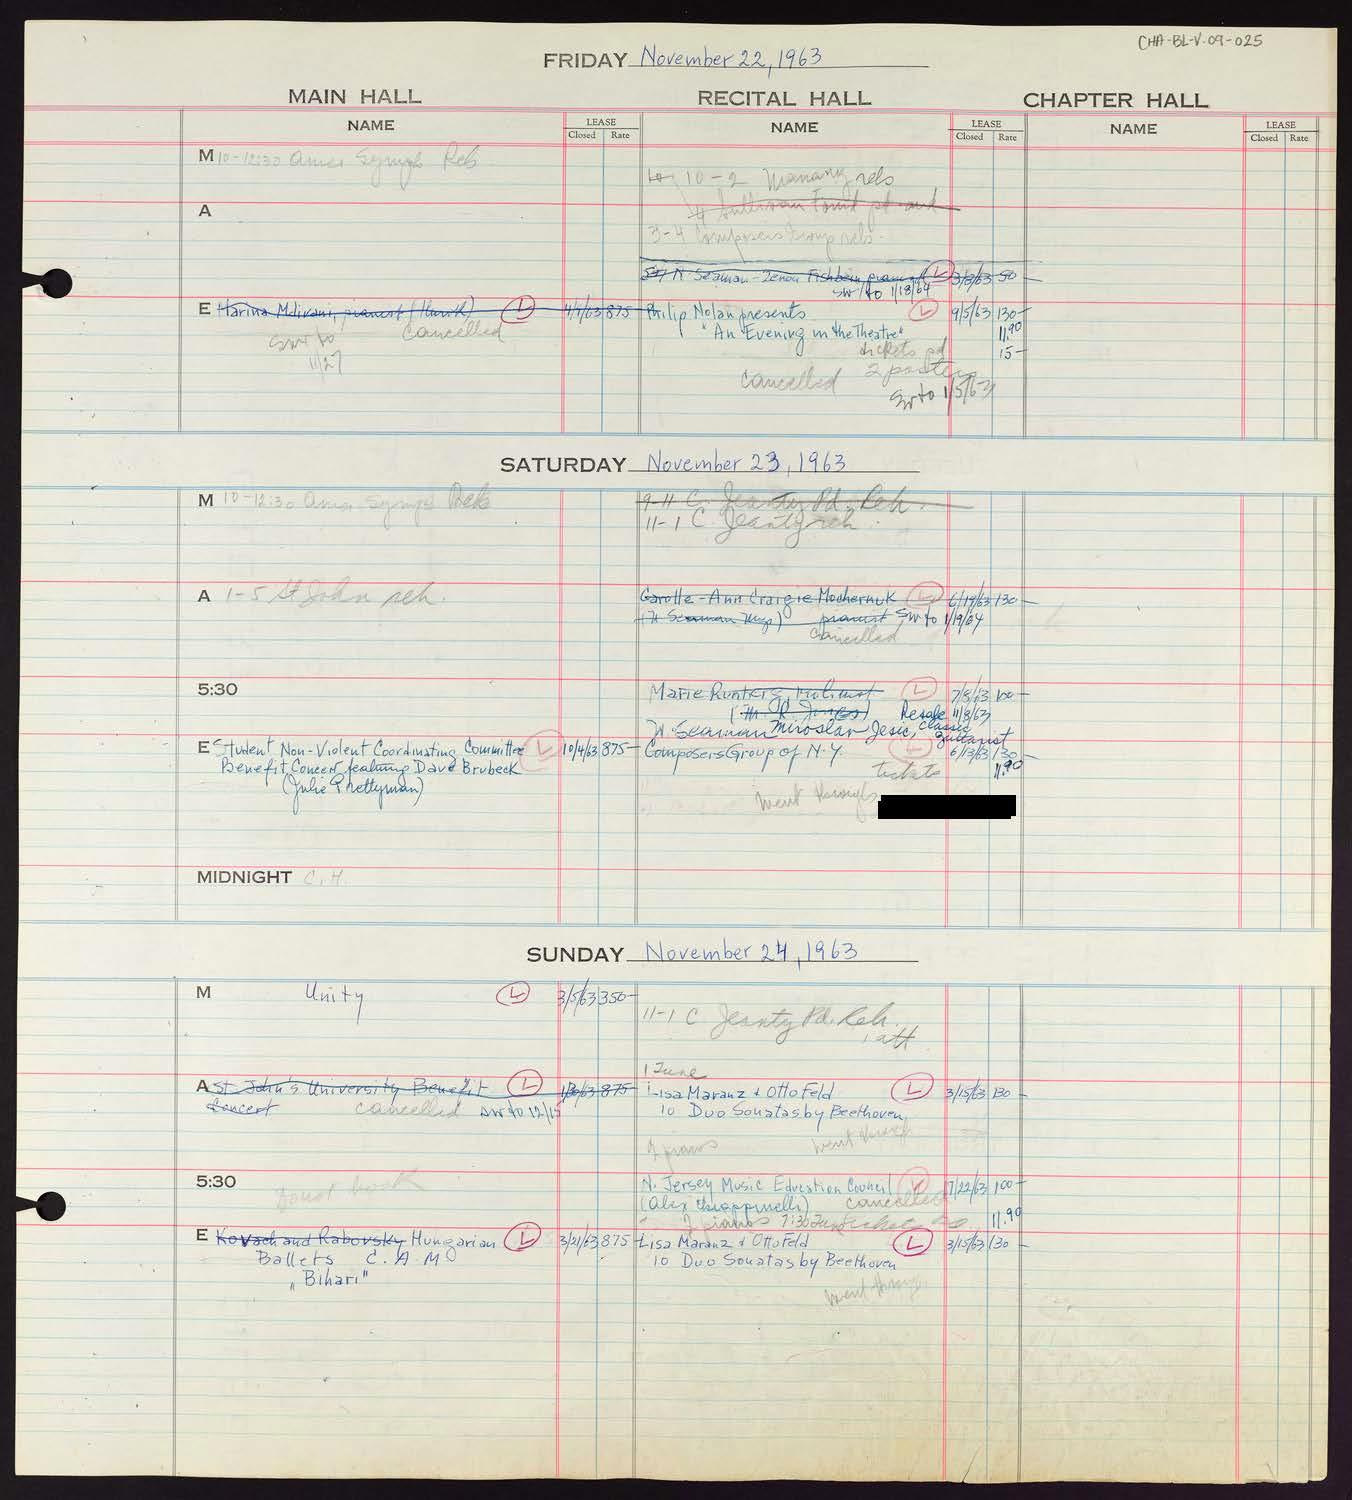 CHA-BL-V.09-025
FRIDAY November 22, 1963
MAIN HALL
RECITAL HALL
CHAPTER HALL
NAME
LEASE
Closed Rate
NAME
LEASE
Closed Rate
NAME
LEASE
Closed Rate
M 10-12:30 Amer Symph Reh
10-2 reh
A
4 Sullivan Found pd aud
3-4 Composers Group reh.
N. Seaman - Zenon Fishbein, pianist L 3/8/63 90-
sw to 1/18/64
E Harina Mdivani, pianist (Hurok) L 4/4/63 875-
cancelled
sw to
11/27
Philip Nolan presents L 9/5/63 130-
"An Evening in the Theatre" 11.90
tickets pd 15-
2 posters
cancelled
Sw to 1/5/63
SATURDAY November 23, 1963
M 10-12:30 Amer Symph Reh
9-11 C. Jeanty Pd. Reh.
11-1 C Jeanty reh.
A 1-5 St John reh.
Carolle-Ann Craigie Mochernuk L 6/19/63 130-
(N Seaman Mgt) pianist sw to 1/19/64
cancelled
5:30
Marie Runters, violinist L 7/8/63 100-
(M. R. Jones) Resale 11/8/63
N. Seaman Miroslav Jesic, classic
guitarist
E Student Non-Violent Coordinating Committee L 10/4/63 875-
Benefit Concert featuring Dave Brubeck
(Julie Prettyman)
Composers Group of N.Y. L 6/13/63 130
tickets 11.90
went through
MIDNIGHT C.H.
SUNDAY November 24, 1963
M Unity L 3/5/63 350-
11-1 C Jeanty Pd. Reh.
1 att
A St. John's University Benefit L 875-
Concert cancelled sw to 12/15
1 Tune
Lisa Maranz & Otto Feld L 3/15/63 130-
10 Duo Sonatas by Beethoven
2 pianos went through
5:30 Do not book
N. Jersey Music Education Council L 7/22/63 100-
cancelled
2 pianos 7:30 11.90
E Kovach and Rabovsky Hungarian L 3/21/63 875-
Ballets C.A.M.
"Bihari"
Lisa Maranz & Otto Feld L 3/15/63 130-
10 Duo Sonatas by Beethoven
went through